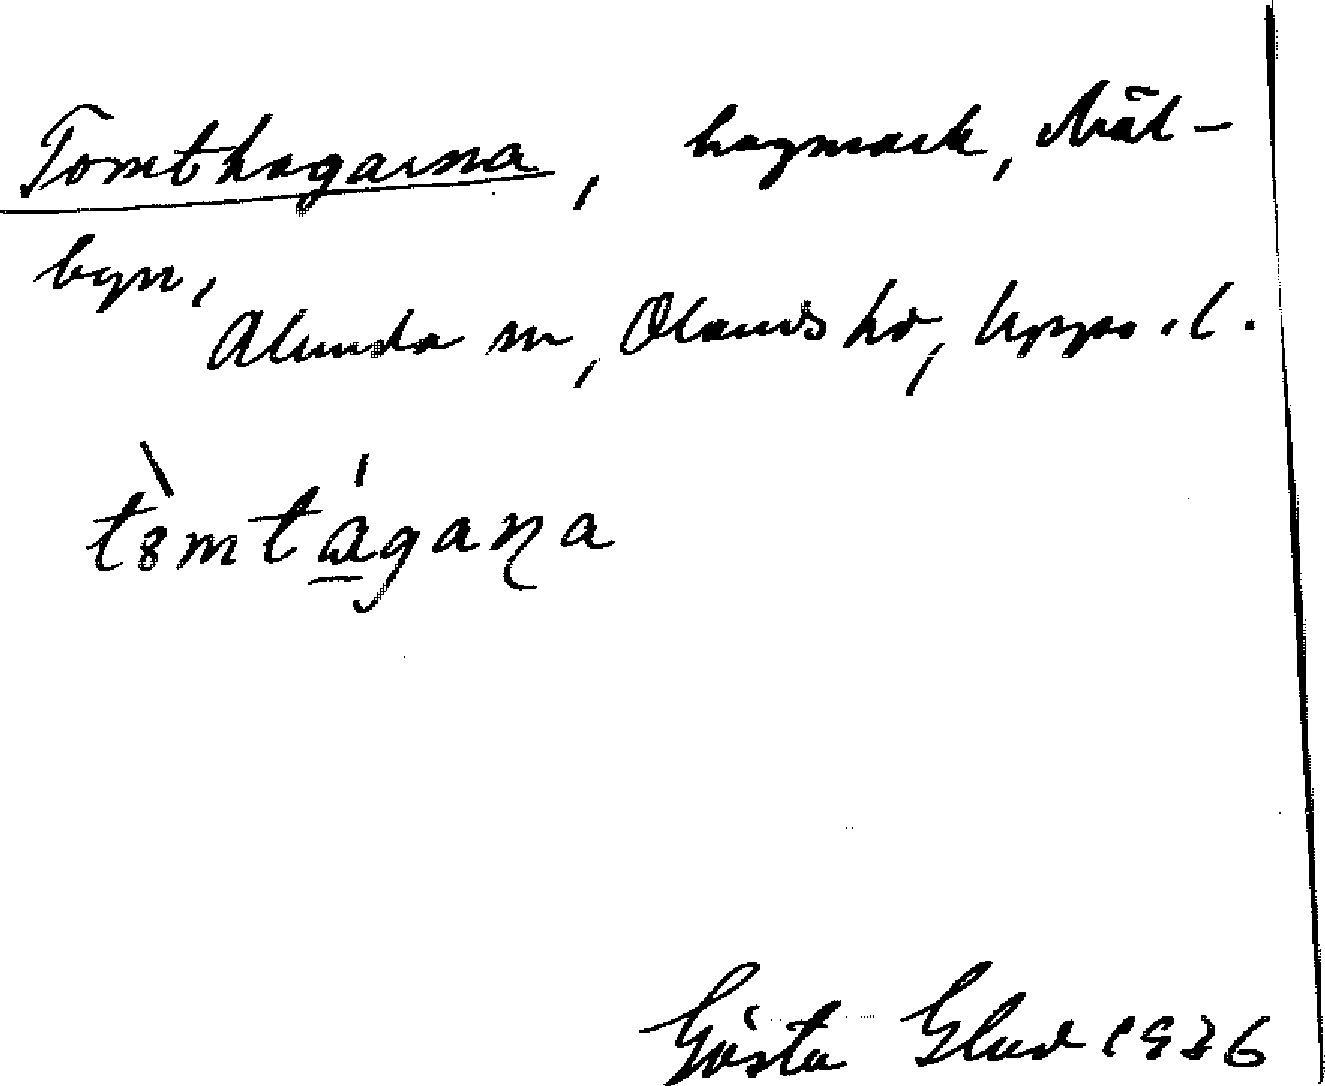 Tomthagarna, hagmark, Mål-
byn,
Alunda sn, Olands hd, Upps. l.
tòmtágaṇa
Gösta Glad 1936